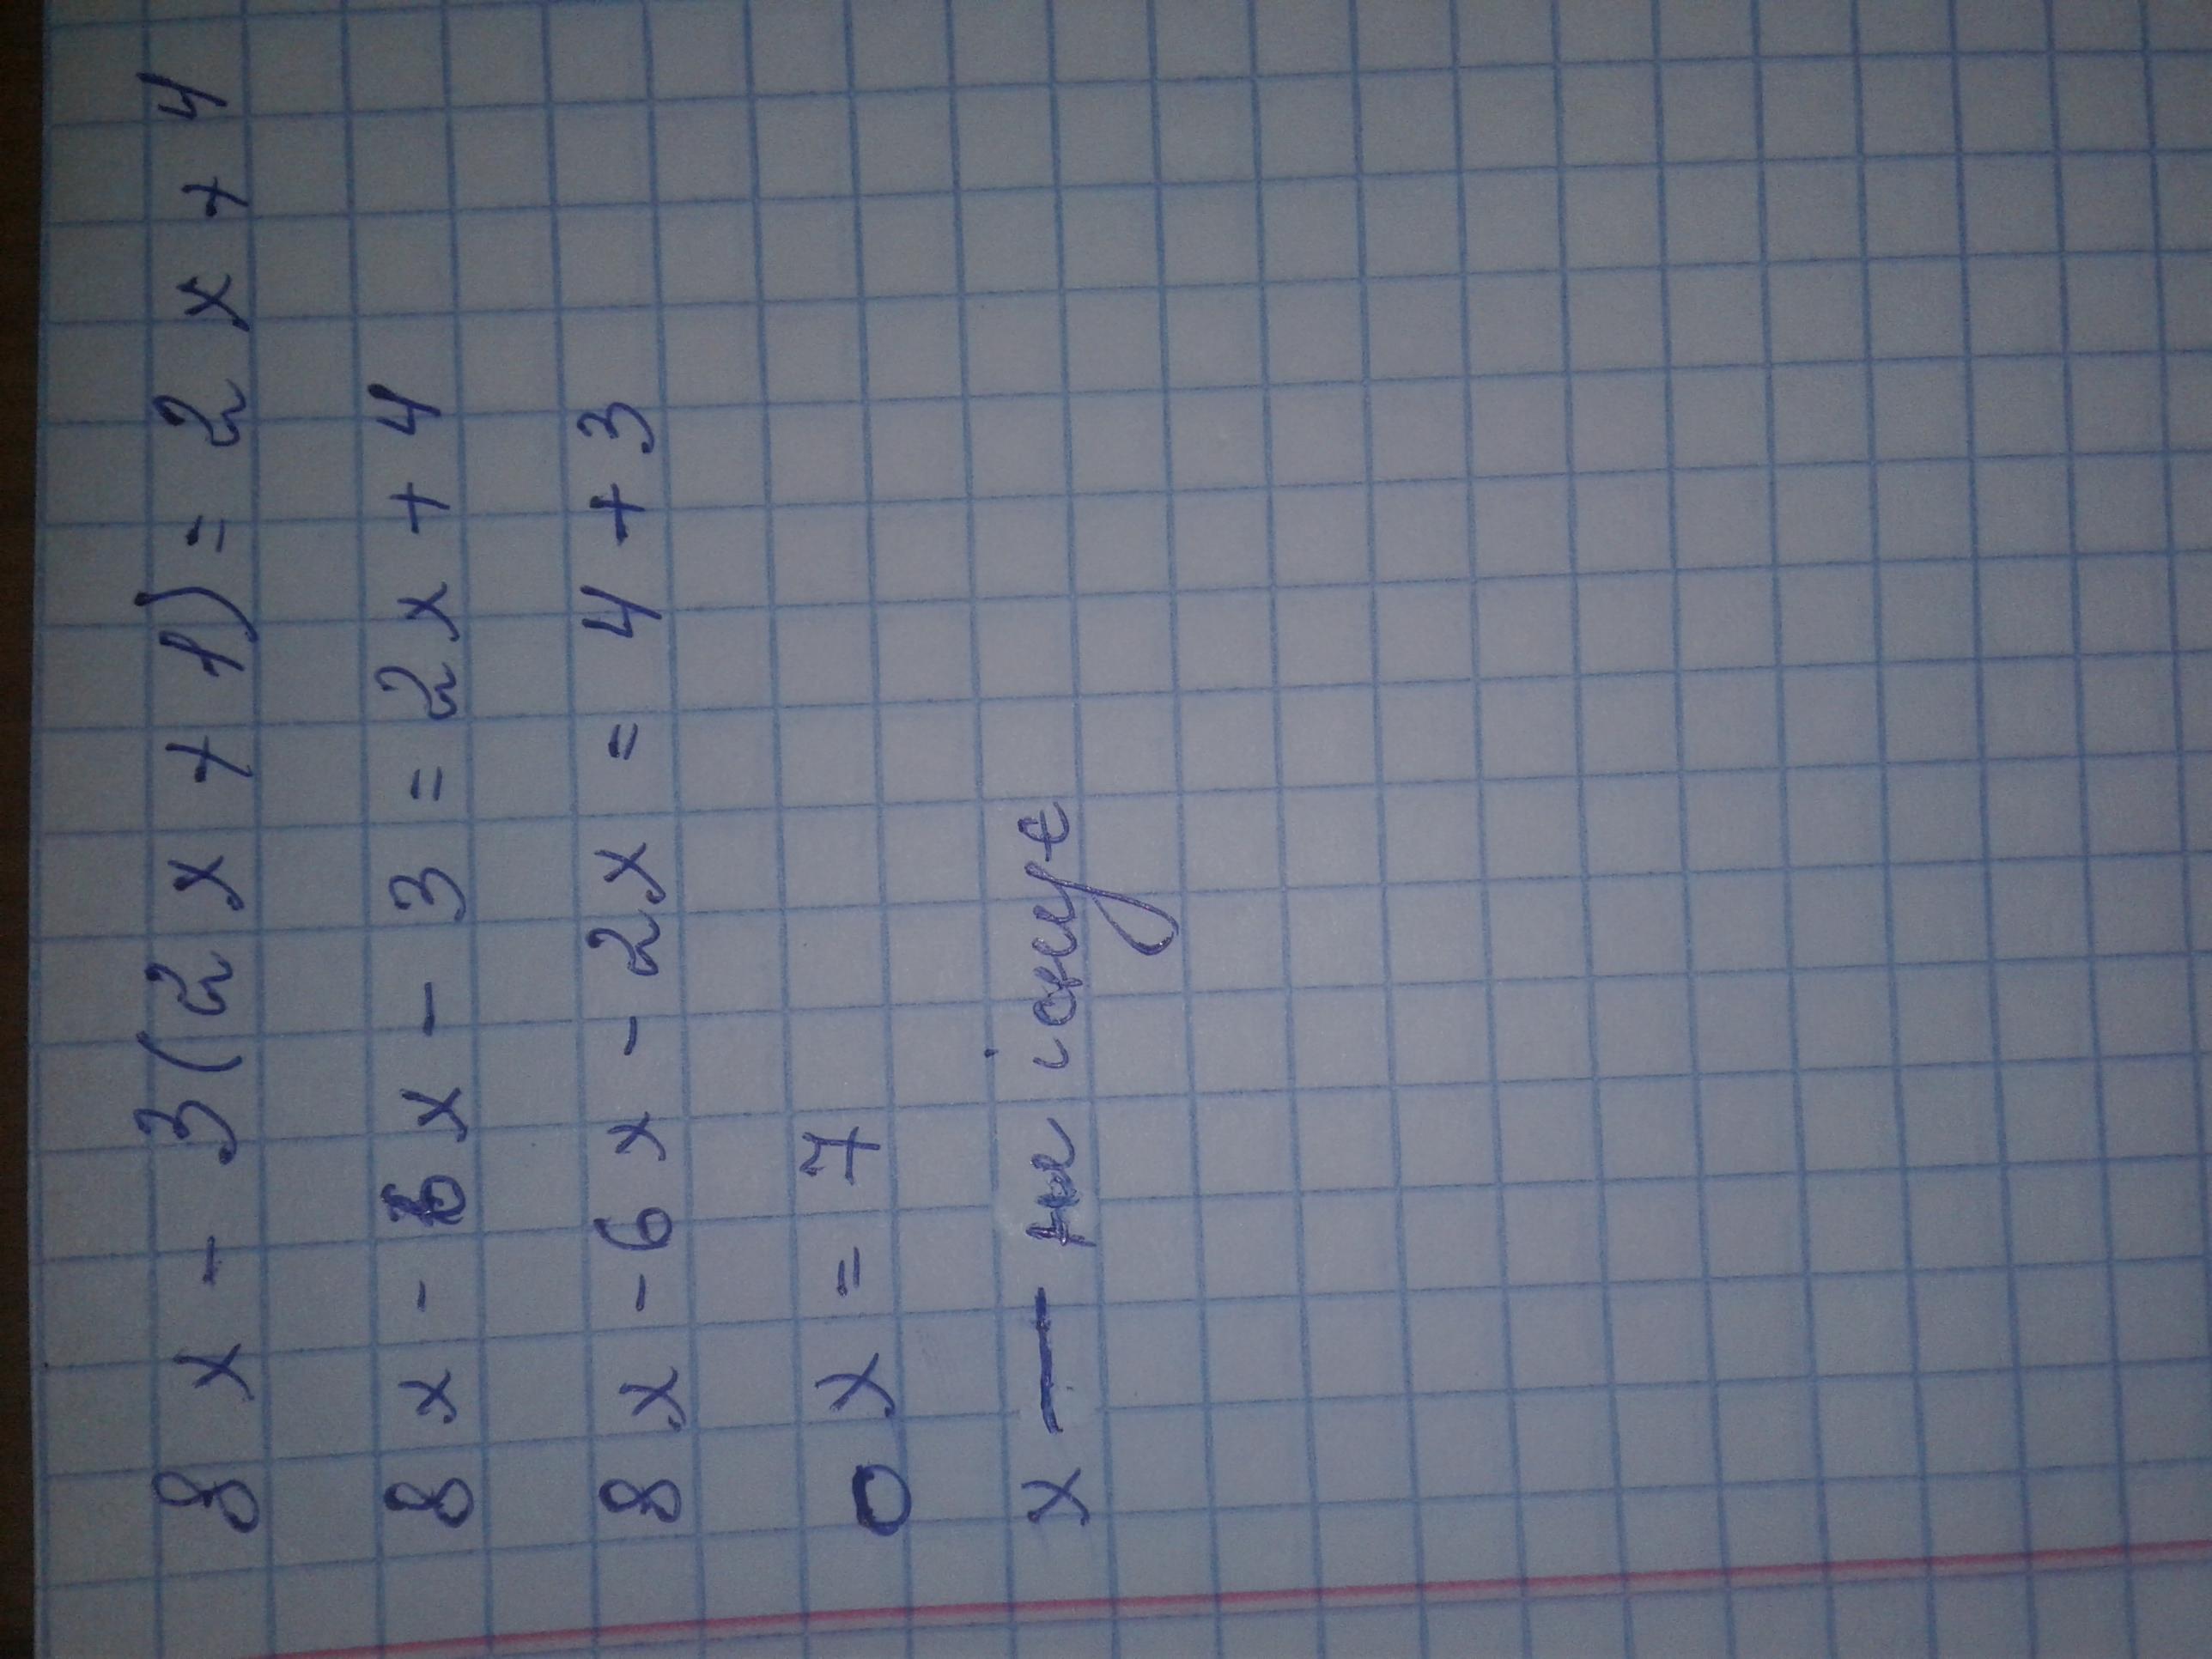 8x - 3(2x + 1) = 2x + 4
8x - 6x - 3 = 2x + 4
8x - 6x - 2x = 4 + 3
0x = 7
x — не існує